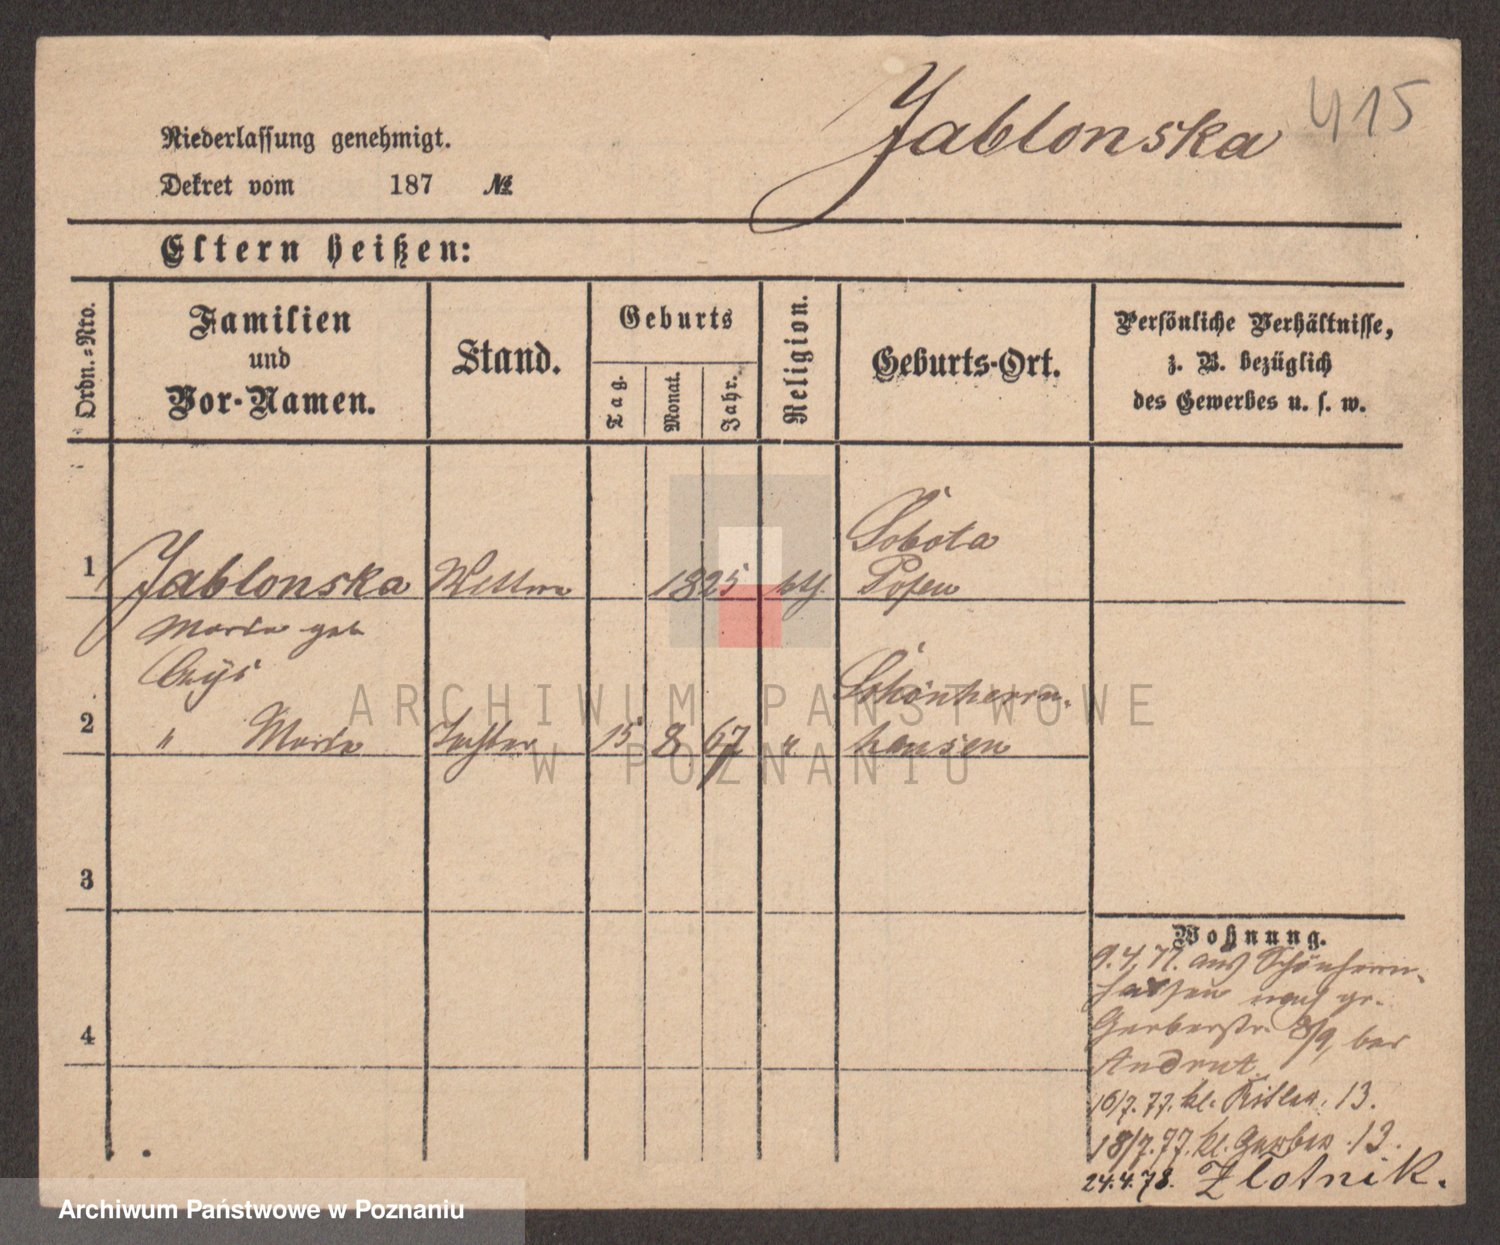 Jablonska 415
Niederlassung genehmigt.
Dekret vom 187 №
Eltern heißen:
Ordn.=Nro.
Familien
und
Vor-Namen.
Stand.
Geburts
Tag.
Monat.
Jahr.
Religion.
Geburts-Ort.
Persönliche Verhältnisse,
z. B. bezüglich
des Gewerbes u. s. w.
Sobota
1 Jablonska 1825 kth. Posen
Maria geb
Schönherrn-
2 " Maria Tochter 15 8 67 " hausen
3
4
Wohnung.
9.4.77. aus Schönherrn-
hausen nach gr.
Gerberstr. 8/9, bei
Andrut.
16/7.77. kl. Ritter. 13.
18/7.77. kl. Gerber. 13.
24.4.78. Zlotnik.
ARCHIWUM PAŃSTWOWE
W POZNANIU
Archiwum Państwowe w Poznaniu